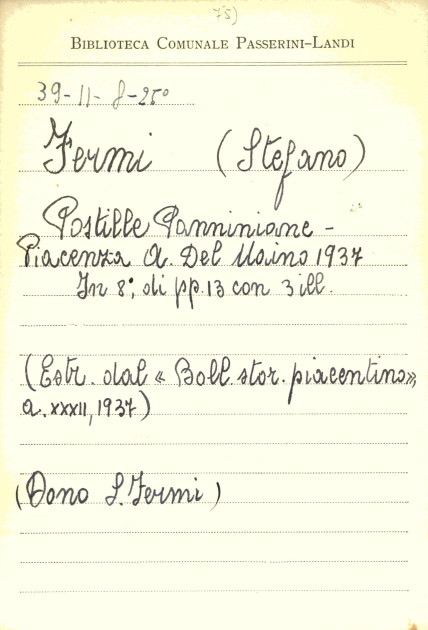 75)
BIBLIOTECA COMUNALE PASSERINI–LANDI
39-11-f-25°
Fermi (Stefano)
Postille Panniniane -
Piacenza A. Del Maino 1937
In 8°; di pp. 13 con 3 ill.
(Estr. dal « Boll. stor. piacentino»,
a. XXXII, 1937)
(Dono S. Fermi)